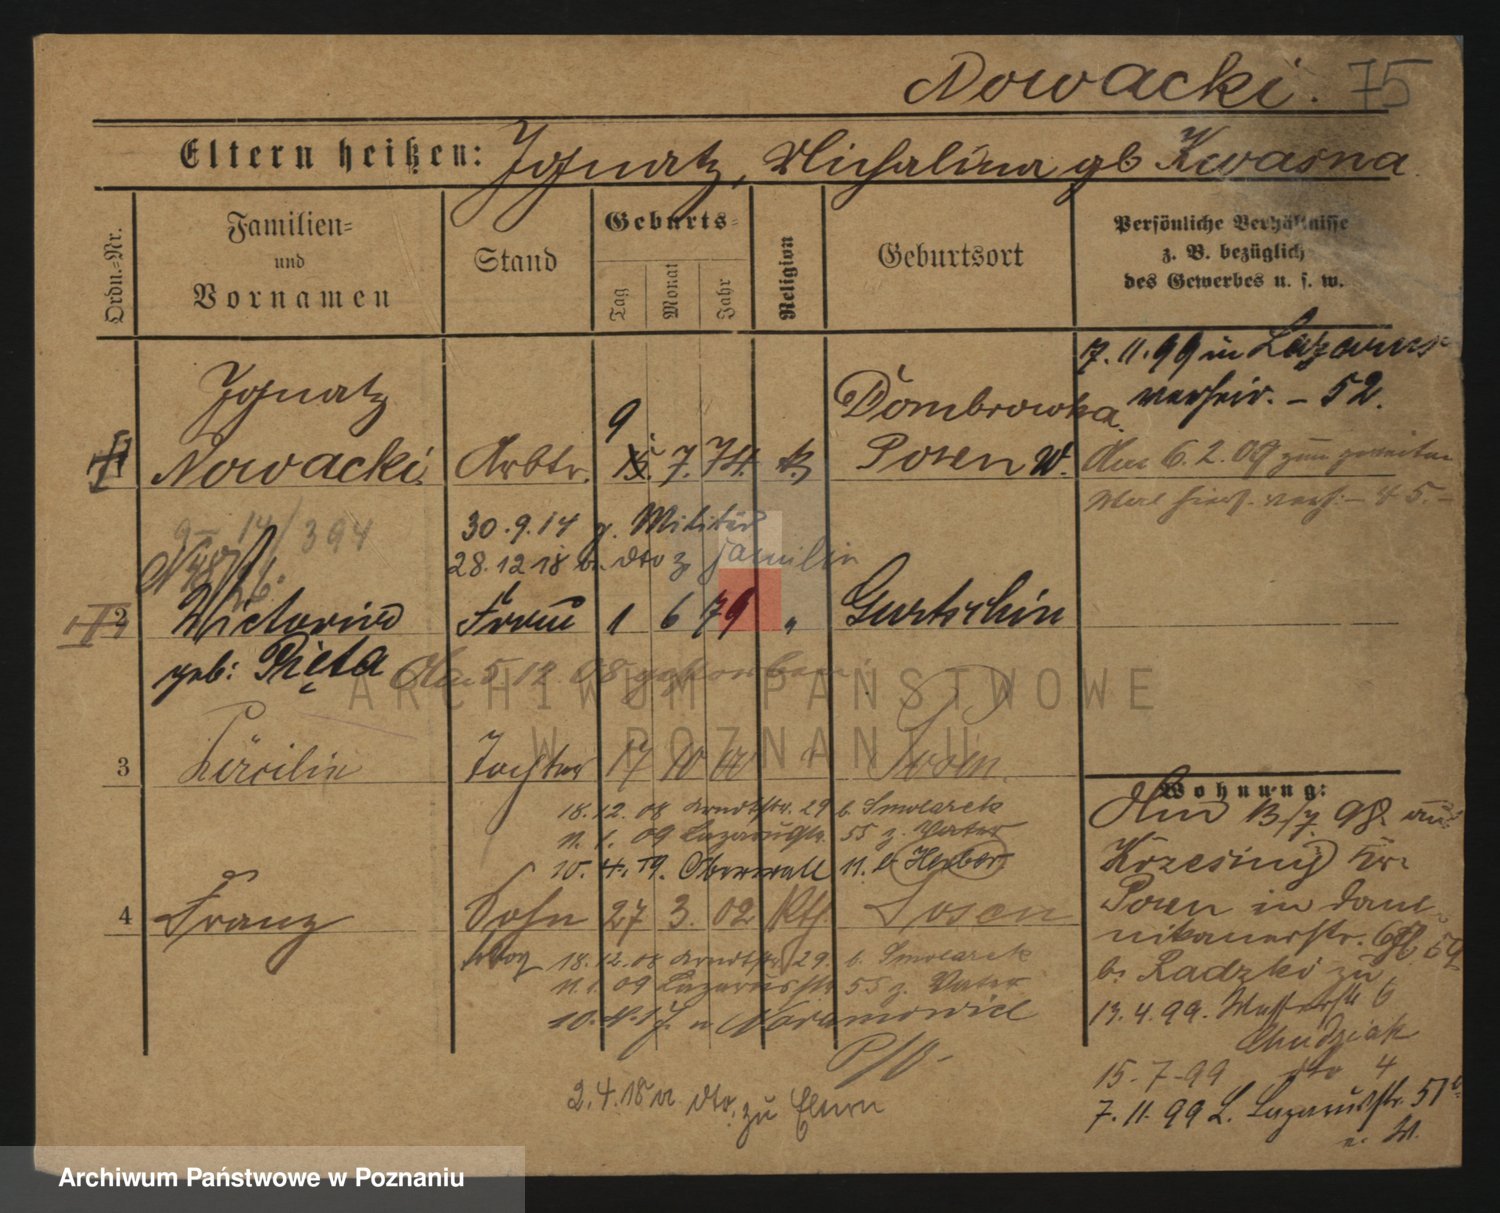 Nowacki. 75
Eltern heißen: Ignatz, Michalina gb Kwasna
Ordn.-Nr.
Familien-
und
Vornamen
Stand
Geburts-
Tag
Monat
Jahr
Religion
Geburtsort
Persönliche Verhältnisse
z. B. bezüglich
des Gewerbes u. s. w.
7. 11. 99 in Lazarus
verheir. - 52.
Ignatz
Nowacki. Arbtr. 9 7. 74. k.
Dombrowka.
Posen W.
Am 6. 2. 09 zum zweiten
Mal
14/394
30.9.14 z. Militär
28.12 18 v. dto z Familie
2 Victoria Frau 1 6 79 " Gurtschin
geb: Pięta Am 5. 12. 08 gestorben
3 Cäcilie Tochter 17 10 Posen.
18. 12. 08 Arndtstr. 29 b. Smolarek
11. 1. 09 Lazarusstr. 55 z. Vater
10. 4. 19. Oberwall 11. b Herber
4 Franz Sohn 27 3. 02 Kth. Posen
18. 12. 08 Arndtstr. 29. b. Smolarek
11. 1. 09 Lazarusstr 55 z. Vater
10. 4. 17. n Naramowice
P/O-
2. 4. 18 v. dto. zu Eltern
Wohnung:
Am 13/7. 98 aus
Krzesiny Kr.
Posen in Domi-
nikanerstr.
b. Radzki zu
13. 4. 99. Wasserstr 6
Chudziak
15. 7. 99 dto 4
7. 11. 99 L. Lazarusstr. 51
ARCHIWUM PAŃSTWOWE
W POZNANIU
Archiwum Państwowe w Poznaniu